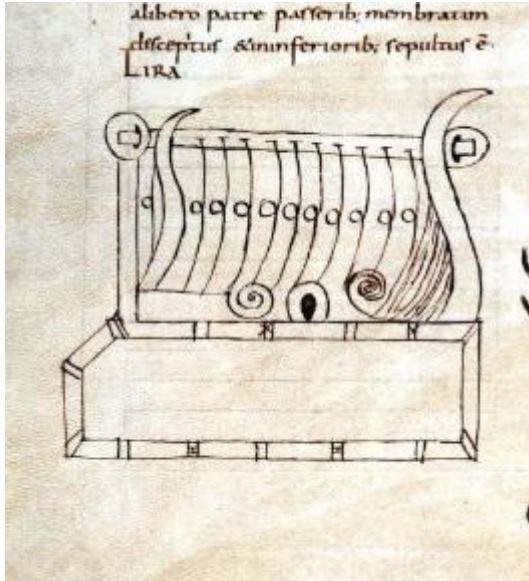 alibero patre passerib; membratim
disceptus & in inferiorib; sepultus ē.
LIRA